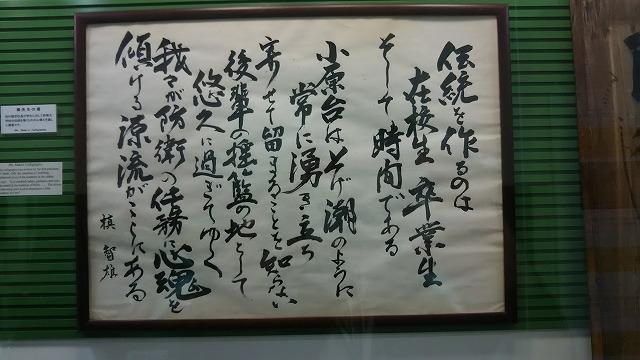 伝統を作るのは
在校生 卒業生
そして時間である
小原台は上げ潮のように
常に湧き立ち
寄せて留まることを知らない
後輩の揺籃の地として
悠久に過ぎてゆく
我々が防衛の任務に心魂を
傾ける源流がここにある
槇 智雄